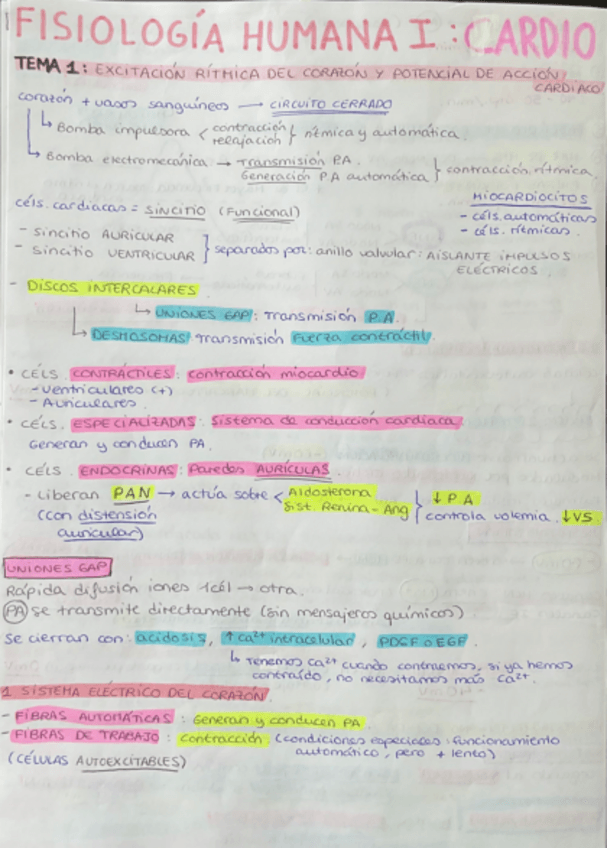 FISIOLOGÍA HUMANA I: CARDIO
TEMA 1: EXCITACIÓN RÍTMICA DEL CORAZÓN Y POTENCIAL DE ACCIÓN
CARDIACO
corazón + vasos sanguíneos → CIRCUITO CERRADO
↳ Bomba impulsora < contracción relajación } rítmica y automática
↳ Bomba electromecánica → Transmisión P.A. Generación PA automática } contracción rítmica.
céls. cardiacas = SINCITIO (Funcional)
MIOCARDIOCITOS
- céls. automáticas
- céls. rítmicas.
- sincitio AURICULAR
- sincitio VENTRICULAR } separados por: anillo valvular: AISLANTE IMPULSOS
ELÉCTRICOS.
- DISCOS INTERCALARES
↳ UNIONES GAP: Transmisión P.A.
↳ DESMOSOMAS: transmisión Fuerza contráctil.
• CÉLS. CONTRÁCTILES: contracción miocardio
- Ventriculares (+)
- Auriculares
• CÉLS. ESPECIALIZADAS: Sistema de conducción cardíaca
Generan y conducen PA.
• CÉLS. ENDOCRINAS: Paredes AURÍCULAS.
- Liberan PAN → actúa sobre < Aldosterona Sist. Renina-Ang } ↓ P.A
(con distensión auricular)
controla volemia. ↓VS.
UNIONES GAP
Rápida difusión iones 1 cél → otra.
PA se transmite directamente (sin mensajeros químicos)
Se cierran con: acidosis, ↑ Ca²⁺ intracelular, PDGF o EGF.
↳ Tenemos Ca²⁺ cuando contraemos, si ya hemos
contraído, no necesitamos más Ca²⁺.
1. SISTEMA ELÉCTRICO DEL CORAZÓN.
- FIBRAS AUTOMÁTICAS: Generan y conducen PA
- FIBRAS DE TRABAJO: Contracción (condiciones especiales: funcionamiento
automático, pero + lento)
(CÉLULAS AUTOEXCITABLES)